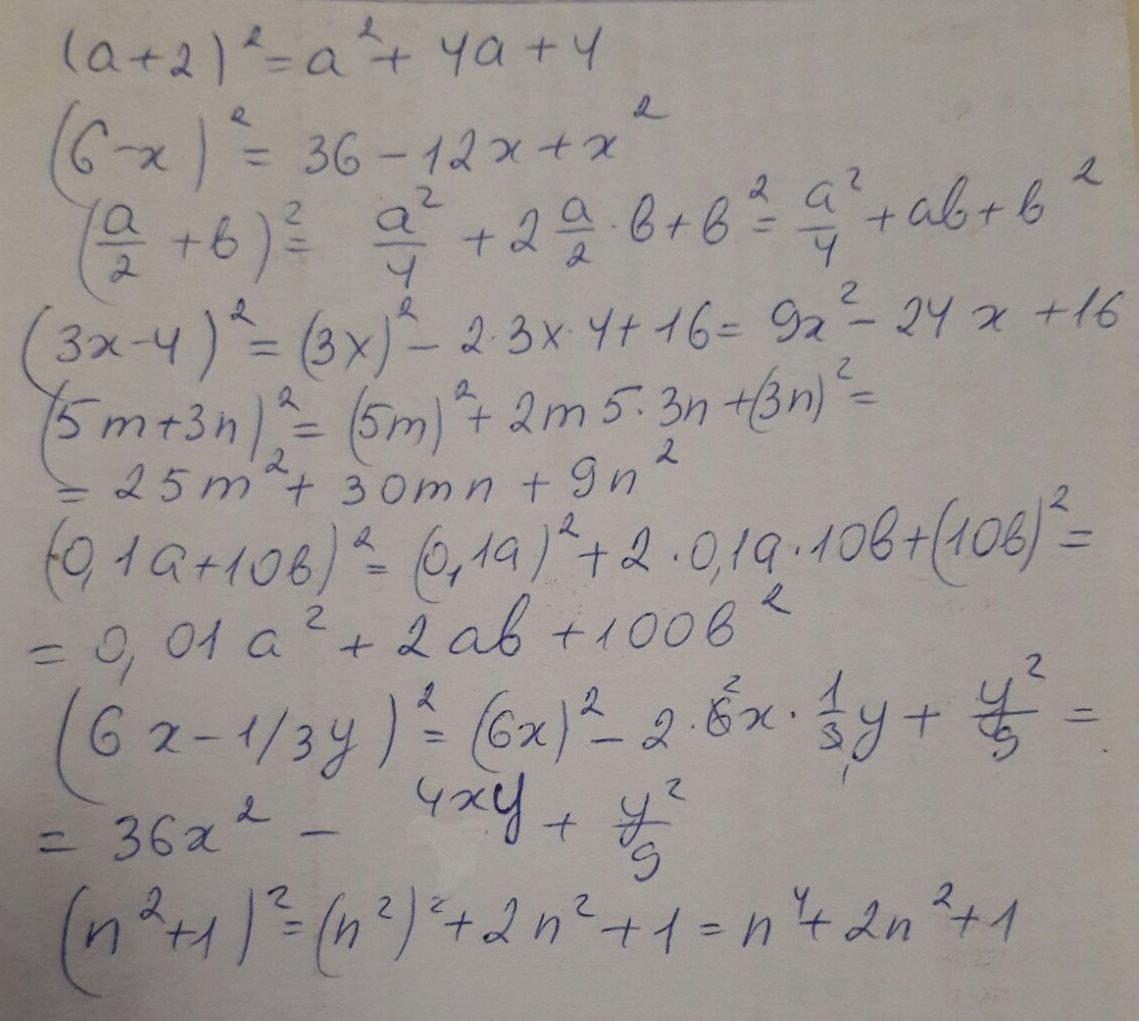 (a+2)² = a² + 4a + 4
(6-x)² = 36 - 12x + x²
(a/2 + в)² = a²/4 + 2 a/2 · в + в² = a²/4 + aв + в²
(3x-4)² = (3x)² - 2·3x·4 + 16 = 9x² - 24x + 16
(5m+3n)² = (5m)² + 2m5·3n + (3n)² =
= 25m² + 30mn + 9n²
(0,1a+10в)² = (0,1a)² + 2·0,1a·10в + (10в)² =
= 0,01a² + 2aв + 100в²
(6x - 1/3y)² = (6x)² - 2·6²x · 1/3 y + y²/9 =
= 36x² - 4xy + y²/9
(n²+1)² = (n²)² + 2n² + 1 = n⁴ + 2n² + 1